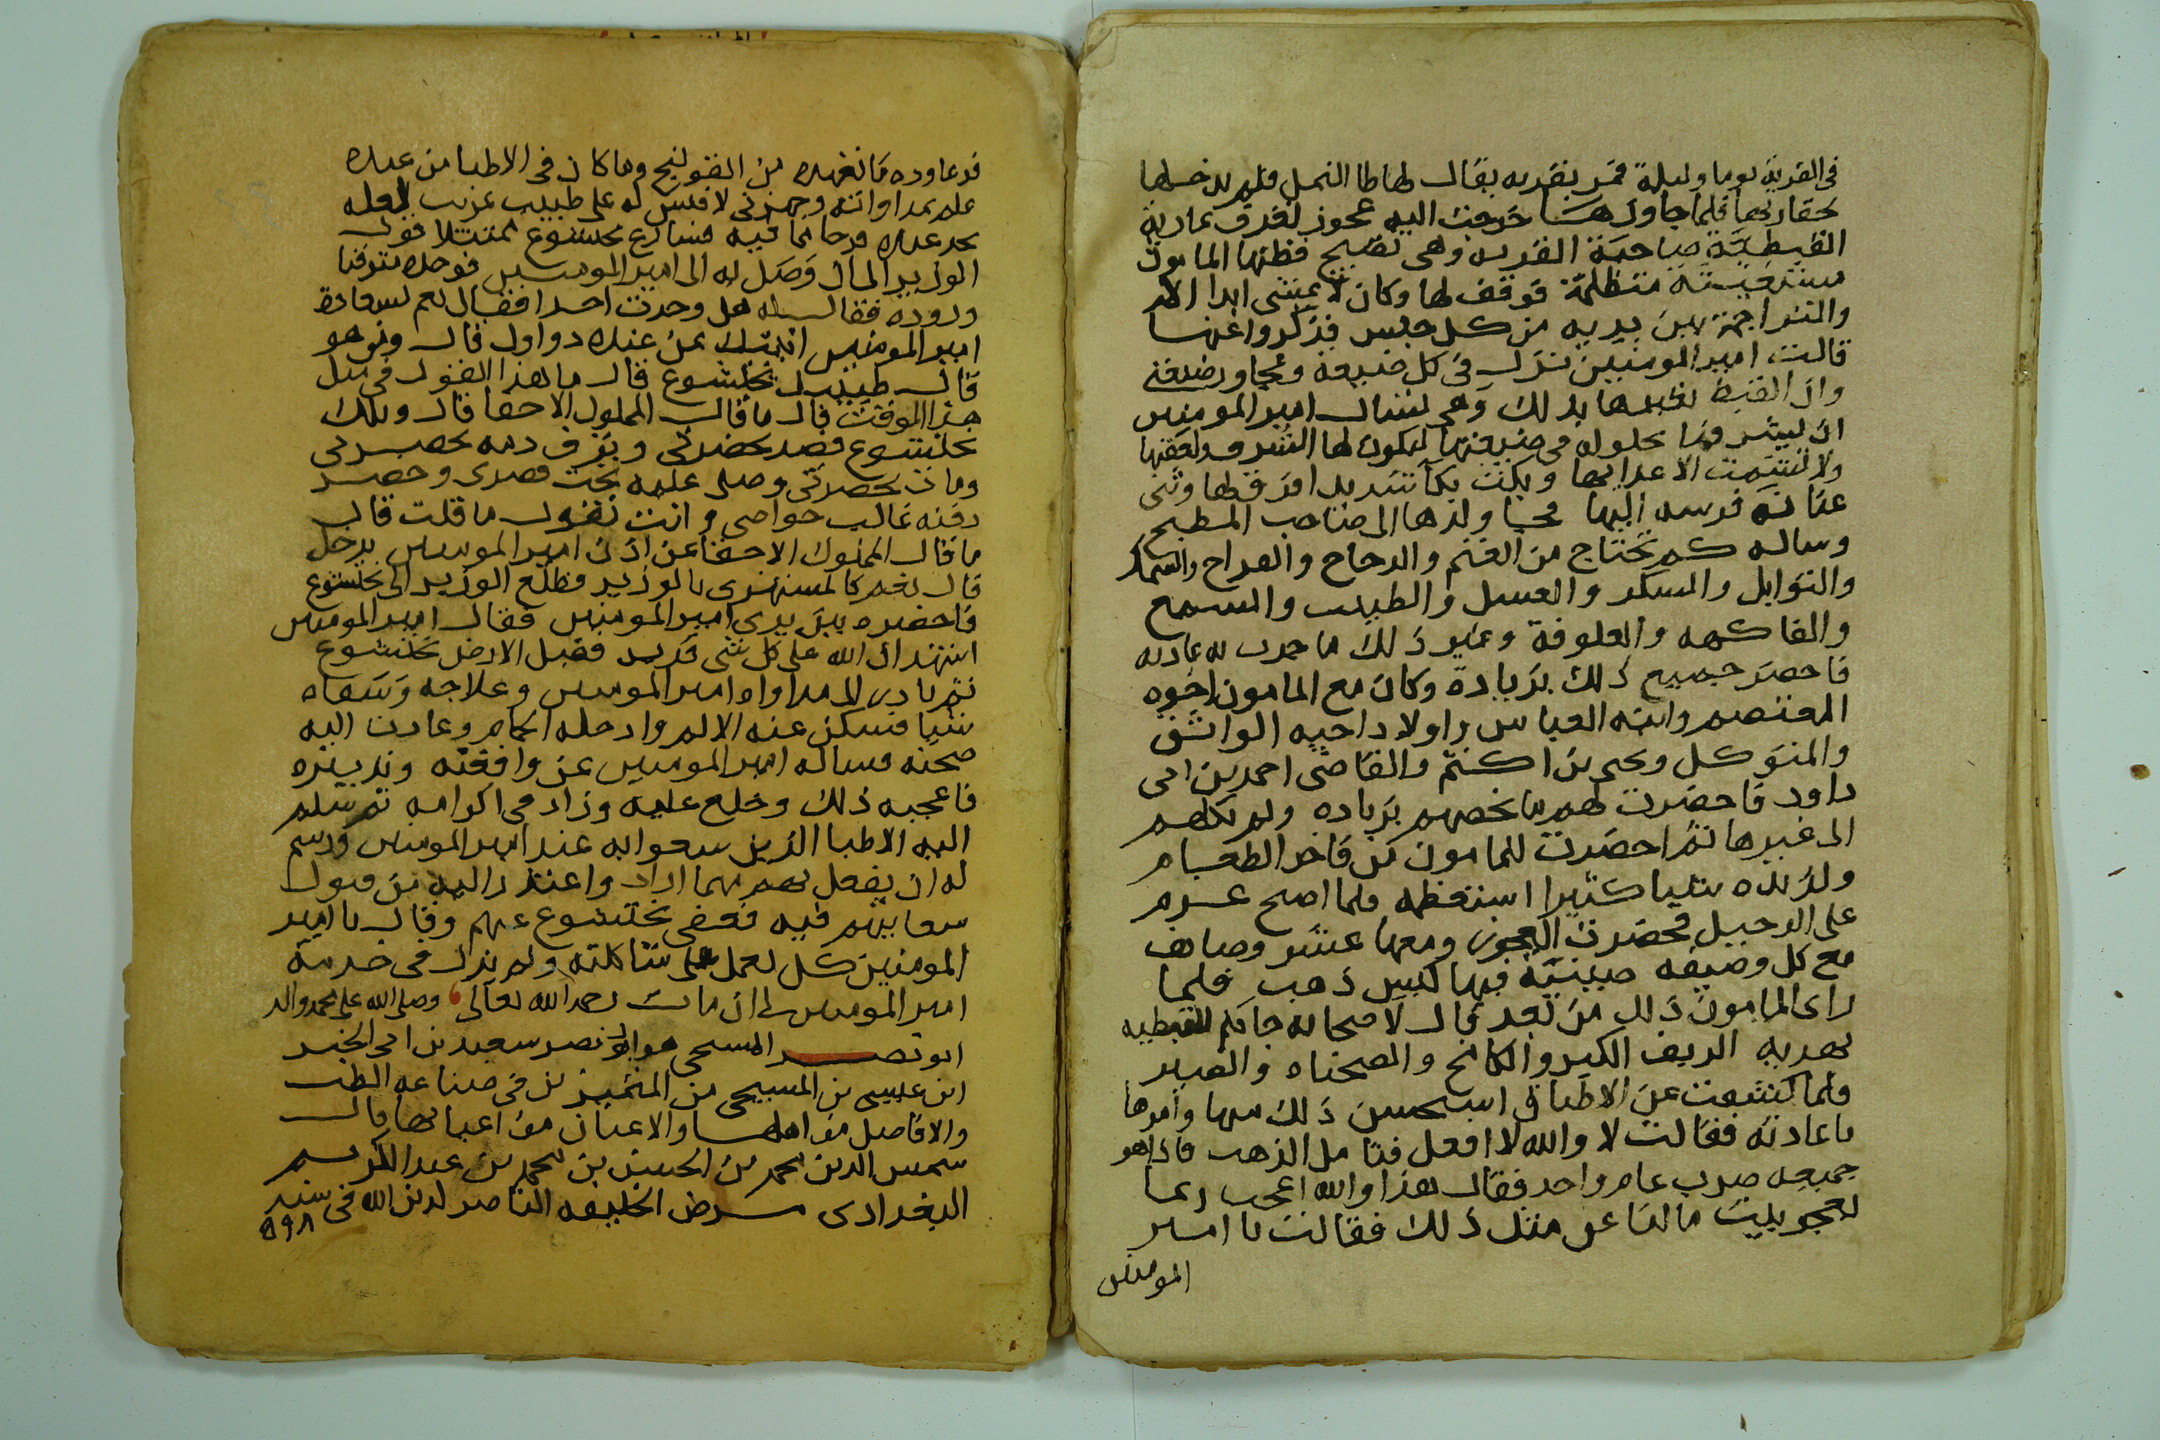 في القرية يوما وليلة فمر بقريه يقال لها طا النمل فلم يدخلها
لحقارتها فلما جاوزها خرجت اليه عجوز تعرف بمارية
القبطية صاحبة القريه وهي تصيح فظنها المامون
مستغيثة متظلمة فوقف لها وكان لا يمشي ابدا الا
والتراجمة بين يديه من كل جنس فذكروا انها
قالت امير المومنين نزل في كل ضيعة وتجاوز ضيعتي
وان القبط تعيرها بذلك وهي تسال امير المومنين
ان يشرفها بحلوله في ضيعتها ليكون لها الشرف ولعقبها
ولا تشمت الاعدا بها وبكت بكا شديدا فرق لها وثنى
عنان فرسه اليها فجا ولدها الى صاحب المطبخ
وساله كم تحتاج من الغنم والدجاج والفراخ والسمك
والتوابل والسكر والعسل والطيب والشمع
والفاكهه والعلوفة وغير ذلك ما جرت به عادته
فاحضر جميع ذلك بزيادة وكان مع المامون اخوه
المعتصم وابنه العباس واولاد اخيه الواثق
والمتوكل ويحيى بن اكثم والقاضي احمد بن ابي
داود فاحضرت لهم ما يخصهم بزياده ولم تكلهم
الى غيرها ثم احضرت للمامون من فاخر الطعام
ولذيذه شيا كثيرا استعظمه فلما اصبح عزم
على الرحيل فحضرت العجوز ومعها عشر وصايف
مع كل وصيفه صينية فيها كيس ذهب فلما
راى المامون ذلك من بعد قال لاصحابه جاتكم القبطيه
بهدية الريف الكبر والكامخ والصحناه والصبر
فلما كشفت عن الاطباق استحسن ذلك منها وامرها
باعادته فقالت لا والله لا افعل فتامل الذهب فاذا هو
جميعه ضرب عام واحد فقال هذا والله اعجب ربما
يعجز بيت مالنا عن مثل ذلك فقالت يا امير
المومنين
قد عاوده ما تعهده من القولنج وما كان في الاطبا من عنده
علم بمداواته وجهزني لافتش له على طبيب غريب لعله
يجد عنده فرجا مما فيه فسارع بختشوع ممتثلا قول
الوزير الى ان وصل به الى امير المومنين فوجده مترقبا
وروده فقال له هل وجدت احدا فقال نعم لسعادة
امير المومنين اتيتك بمن عنده دوا وقال ومن هو
قال طبيبك بختشوع قال ما هذا القول في مثل
هذا الوقت قال ما قال المملوك الا حقا قال ويلك
بختشوع فصد بحضرتي ونزف دمه بحضرتي
ومات بحضرتي وصلى عليه تحت قصري وحضر
دفنه غالب خواصي وانت تقول ما قلت قال
ما قال المملوك الا حقا عن اذن امير المومنين يدخل
قال نعم كالمستهزي بالوزير فطلع الوزير الى بختشوع
فاحضره بين يدي امير المومنين فقال امير المومنين
اشهد ان الله على كل شي قدير فقبل الارض بختشوع
ثم بادر الى مداواه امير المومنين وعلاجه وسقاه
شيا فسكن عنه الالم وادخله الحمام وعادت اليه
صحته فساله امير المومنين عن واقعته وتدبيره
فاعجبه ذلك وخلع عليه وزاد في اكرامه ثم سلم
اليه الاطبا الذين سعوا به عند امير المومنين ورسم
له ان يفعل بهم مهما اراد واعتذر اليه من قبول
سعايتهم فيه فعفى بختشوع عنهم وقال يا امير
المومنين كل يعمل على شاكلته ولم يزل في خدمة
امير المومنين الى ان مات رحمه الله تعالى وصلى الله على محمد واله
ابو نصر المسيحي هو ابو نصر سعيد بن ابي الخير
ابن عيسى بن المسيحي من المتميزين في صناعه الطب
والافاضل من اهلها والاعيان من اعيانها قال
شمس الدين محمد بن الحسن بن محمد بن عبد الكريم
البغدادي مرض الخليفه الناصر لدين الله في سنه ٥٩٨